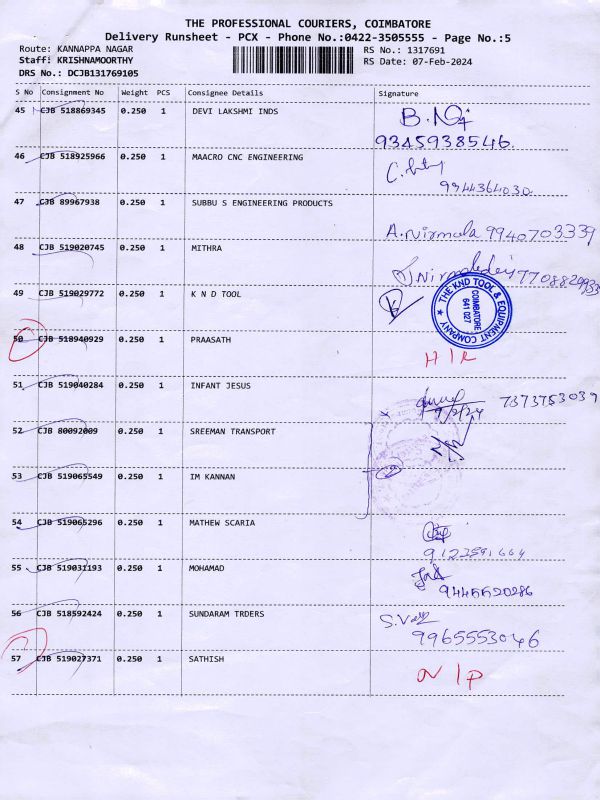 THE PROFESSIONAL COURIERS, COIMBATORE
Delivery Runsheet - PCX - Phone No.:0422-3505555 - Page No.:5
Route: KANNAPPA NAGAR RS No.: 1317691
Staff: KRISHNAMOORTHY RS Date: 07-Feb-2024
DRS No.: DCJB131769105
S No Consignment No Weight PCS Consignee Details Signature
45 CJB 518869345 0.250 1 DEVI LAKSHMI INDS
9345938546.
46 CJB 518925966 0.250 1 MAACRO CNC ENGINEERING
9944364030.
47 CJB 89967938 0.250 1 SUBBU S ENGINEERING PRODUCTS
A. Nirmala 9940703339
48 CJB 519020745 0.250 1 MITHRA
49 CJB 519029772 0.250 1 K N D TOOL
THE KND TOOL & EQUIPMENT COMPANY
COIMBATORE
641 027
50 CJB 518940929 0.250 1 PRAASATH
H/R
51 CJB 519040284 0.250 1 INFANT JESUS
7373753039
9/2/24
52 CJB 80092089 0.250 1 SREEMAN TRANSPORT
53 CJB 519065549 0.250 1 IM KANNAN
54 CJB 519065296 0.250 1 MATHEW SCARIA
55 CJB 519031193 0.250 1 MOHAMAD
9445620286
56 CJB 518592424 0.250 1 SUNDARAM TRDERS
9965553046
57 CJB 519027371 0.250 1 SATHISH
N/P